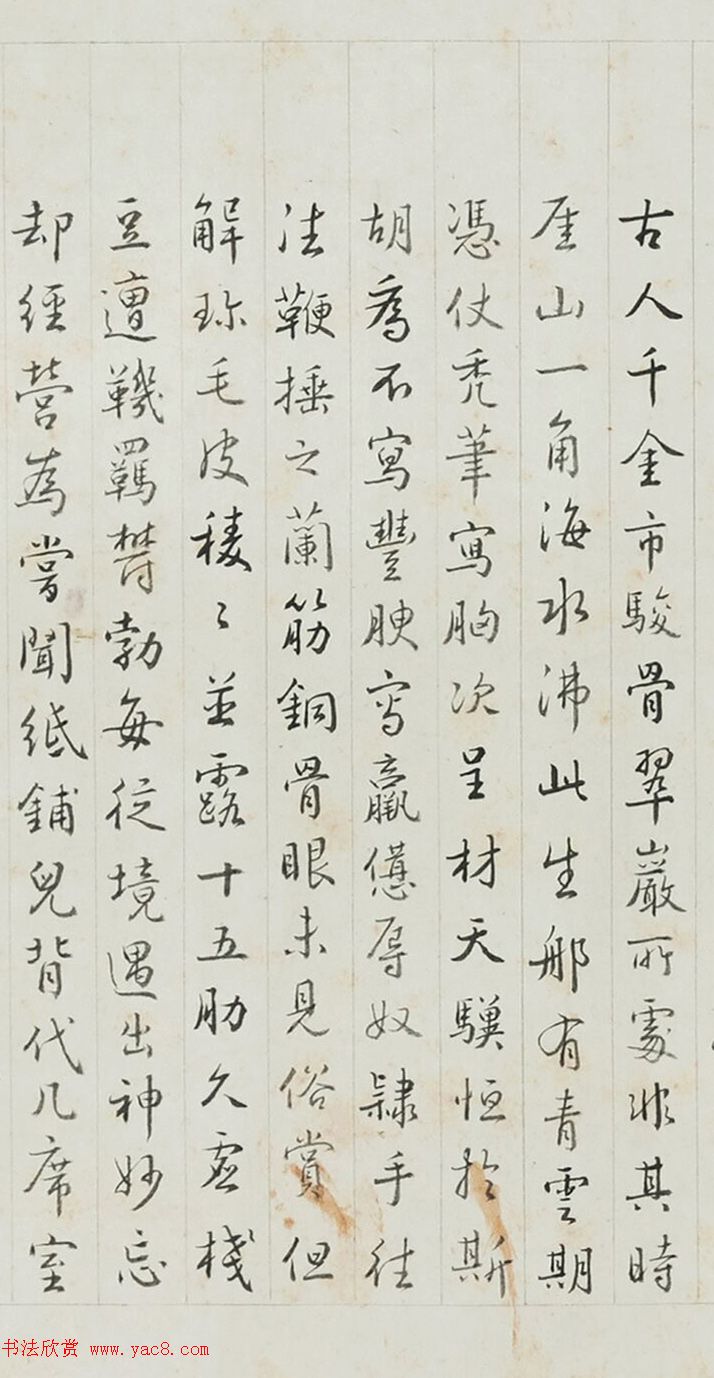 古人千金市駿骨翠巖所處非其時
厓山一角海水沸此生那有青雲期
憑仗秃筆寫胸次呈材天驥恒於斯
胡為不寫豐腴寫羸憊辱奴隸手往
往鞭捶之蘭筋銅骨眼未見俗賞但
解珎毛皮稜〻並露十五肋久虛棧
豆遭鞿羈欝勃每從境遇出神妙忘
却經營為嘗聞紙鋪兒背代几席室
书法欣赏 www.yac8.com